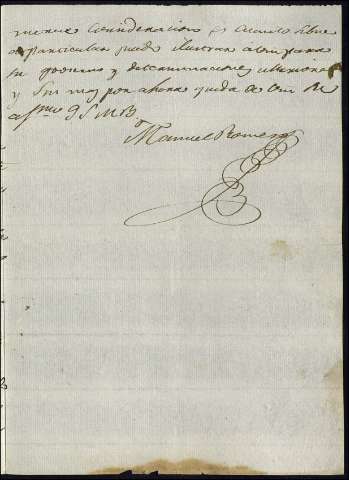 merece consideracion es cuanto sobre
el particular puedo ilustrar a Vm para
su govierno y determinaciones ulteriores
y sin mas por ahora queda de Vm su
afmo q S M B
Manuel Romero